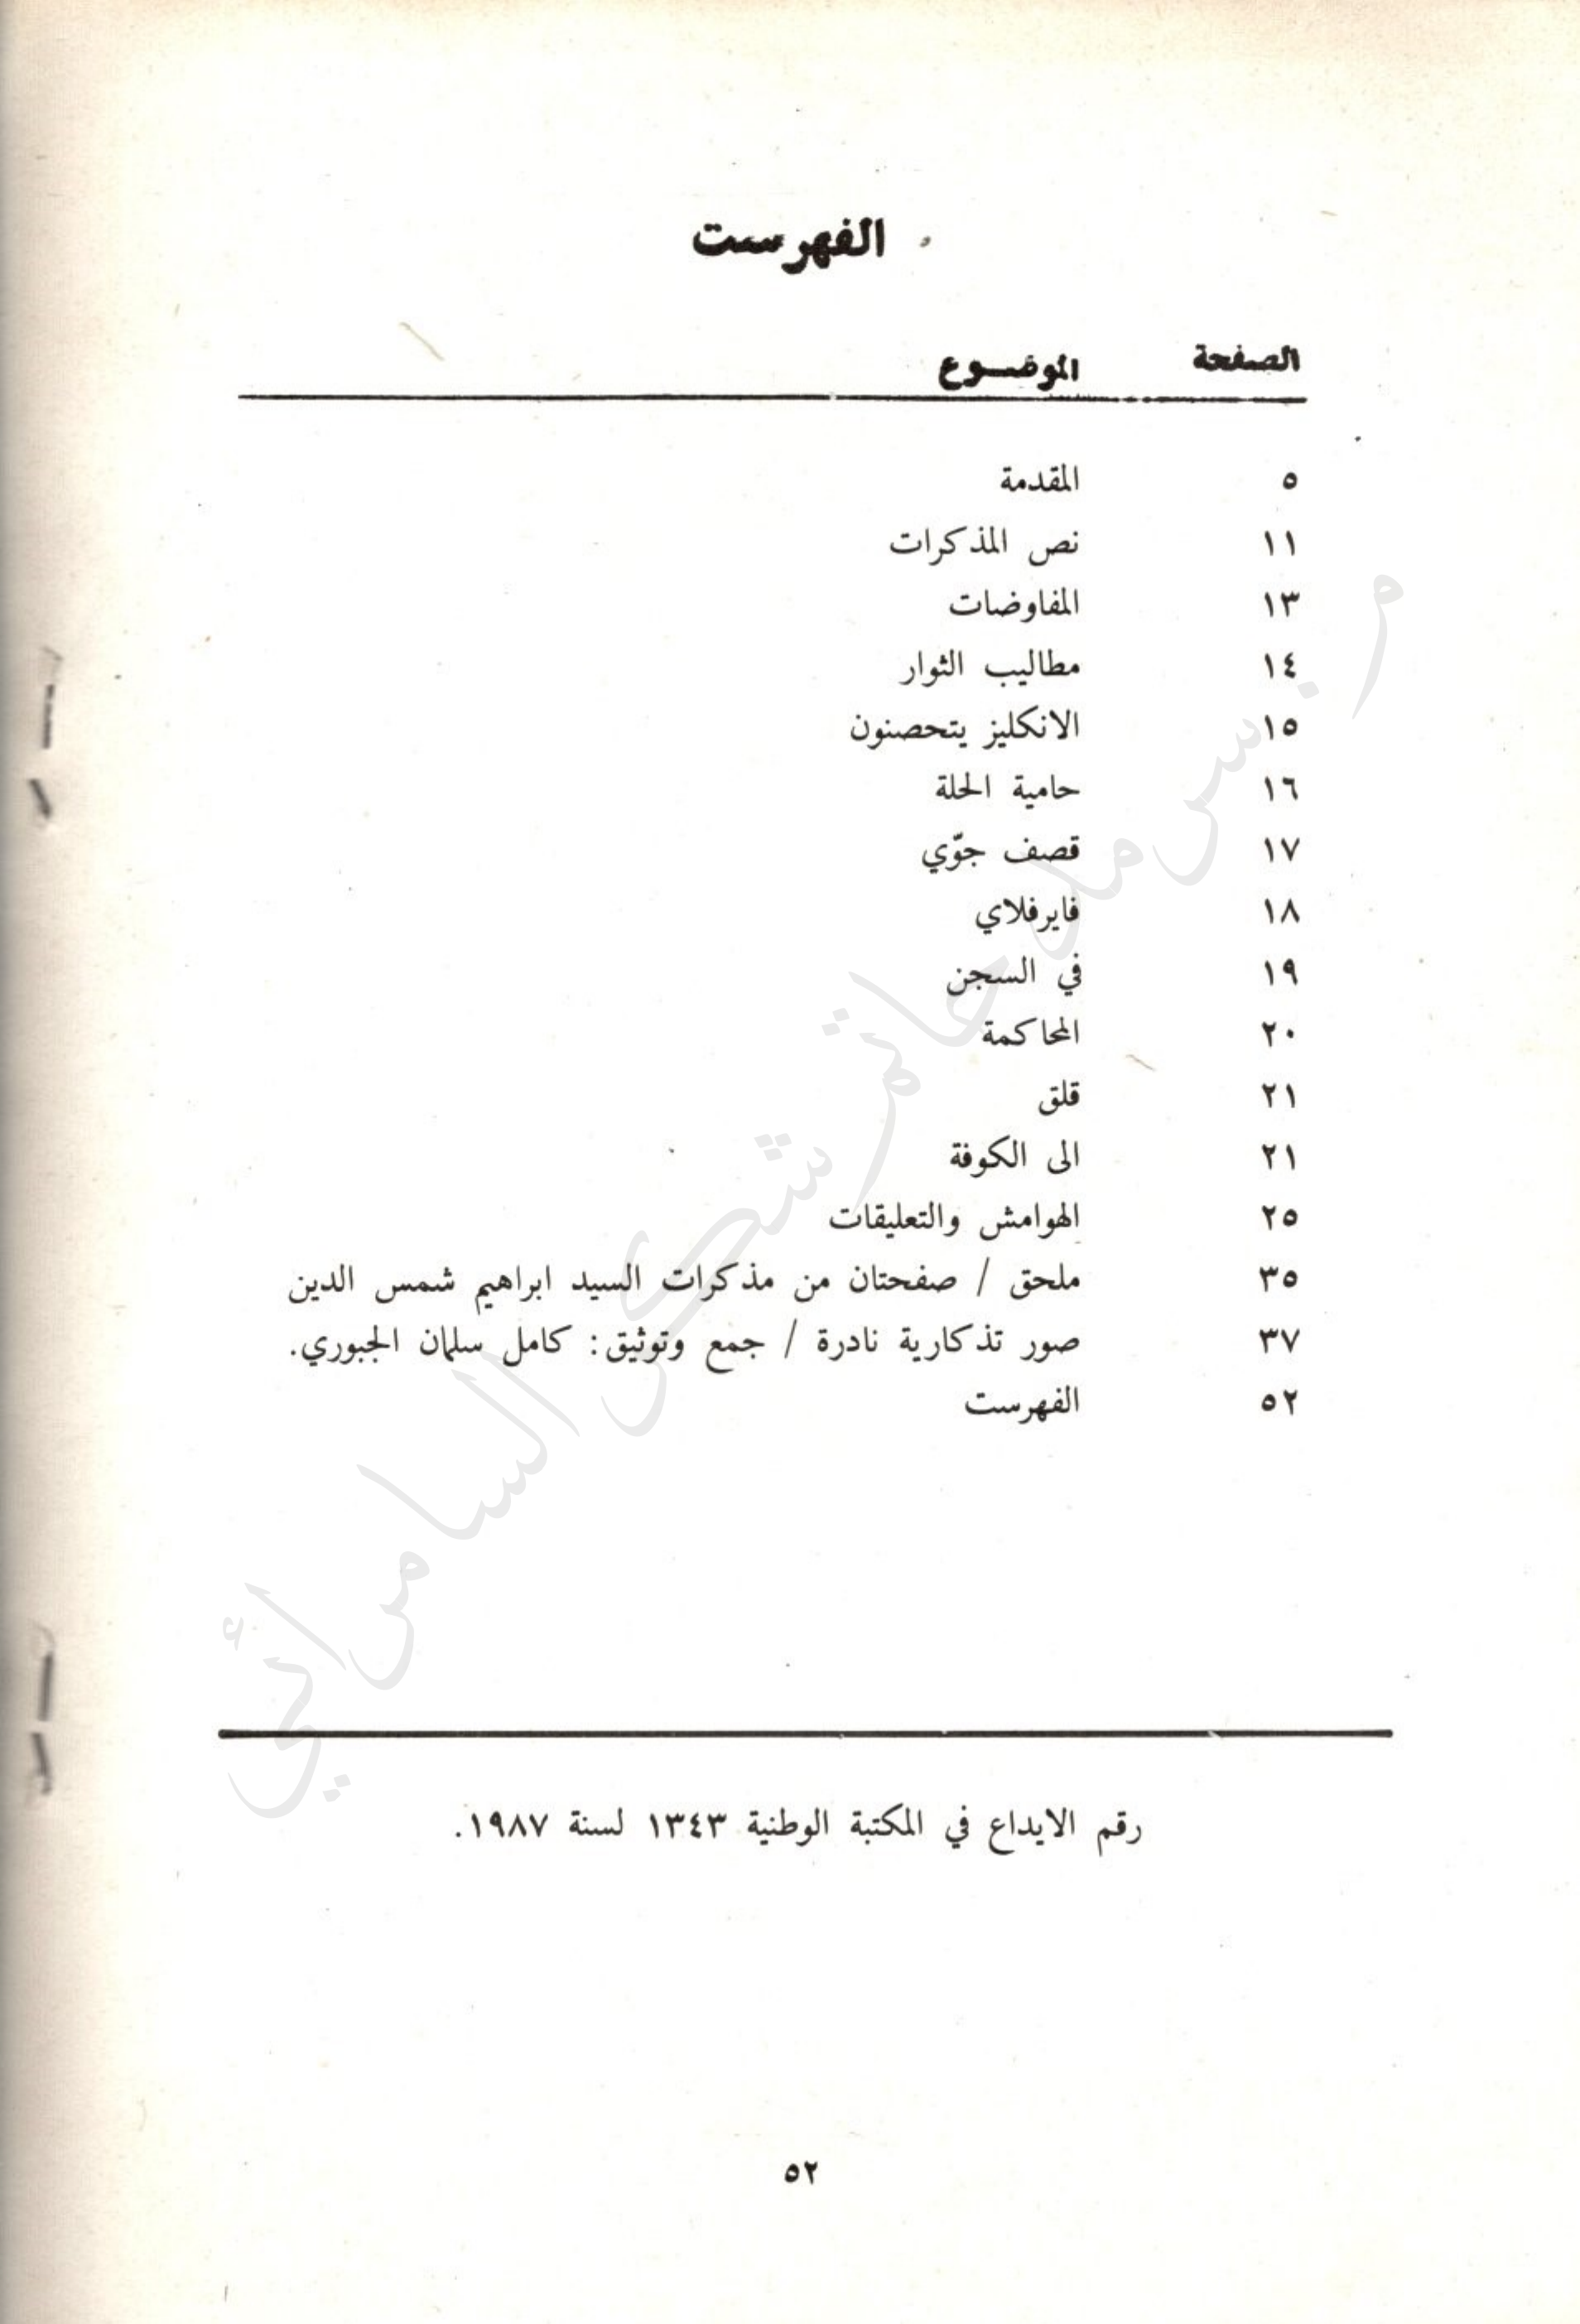 الفهرست
الصفحة الموضوع
٥ المقدمة
١١ نص المذكرات
١٣ المفاوضات
١٤ مطاليب الثوار
١٥ الانكليز يتحصنون
١٦ حامية الحلة
١٧ قصف جوّي
١٨ فايرفلاي
١٩ في السجن
٢٠ المحاكمة
٢١ قلق
٢١ الى الكوفة
٢٥ الهوامش والتعليقات
٣٥ ملحق / صفحتان من مذكرات السيد ابراهيم شمس الدين
٣٧ صور تذكارية نادرة / جمع وتوثيق: كامل سلمان الجبوري.
٥٢ الفهرست
رقم الايداع في المكتبة الوطنية ١٣٤٣ لسنة ١٩٨٧.
٥٢